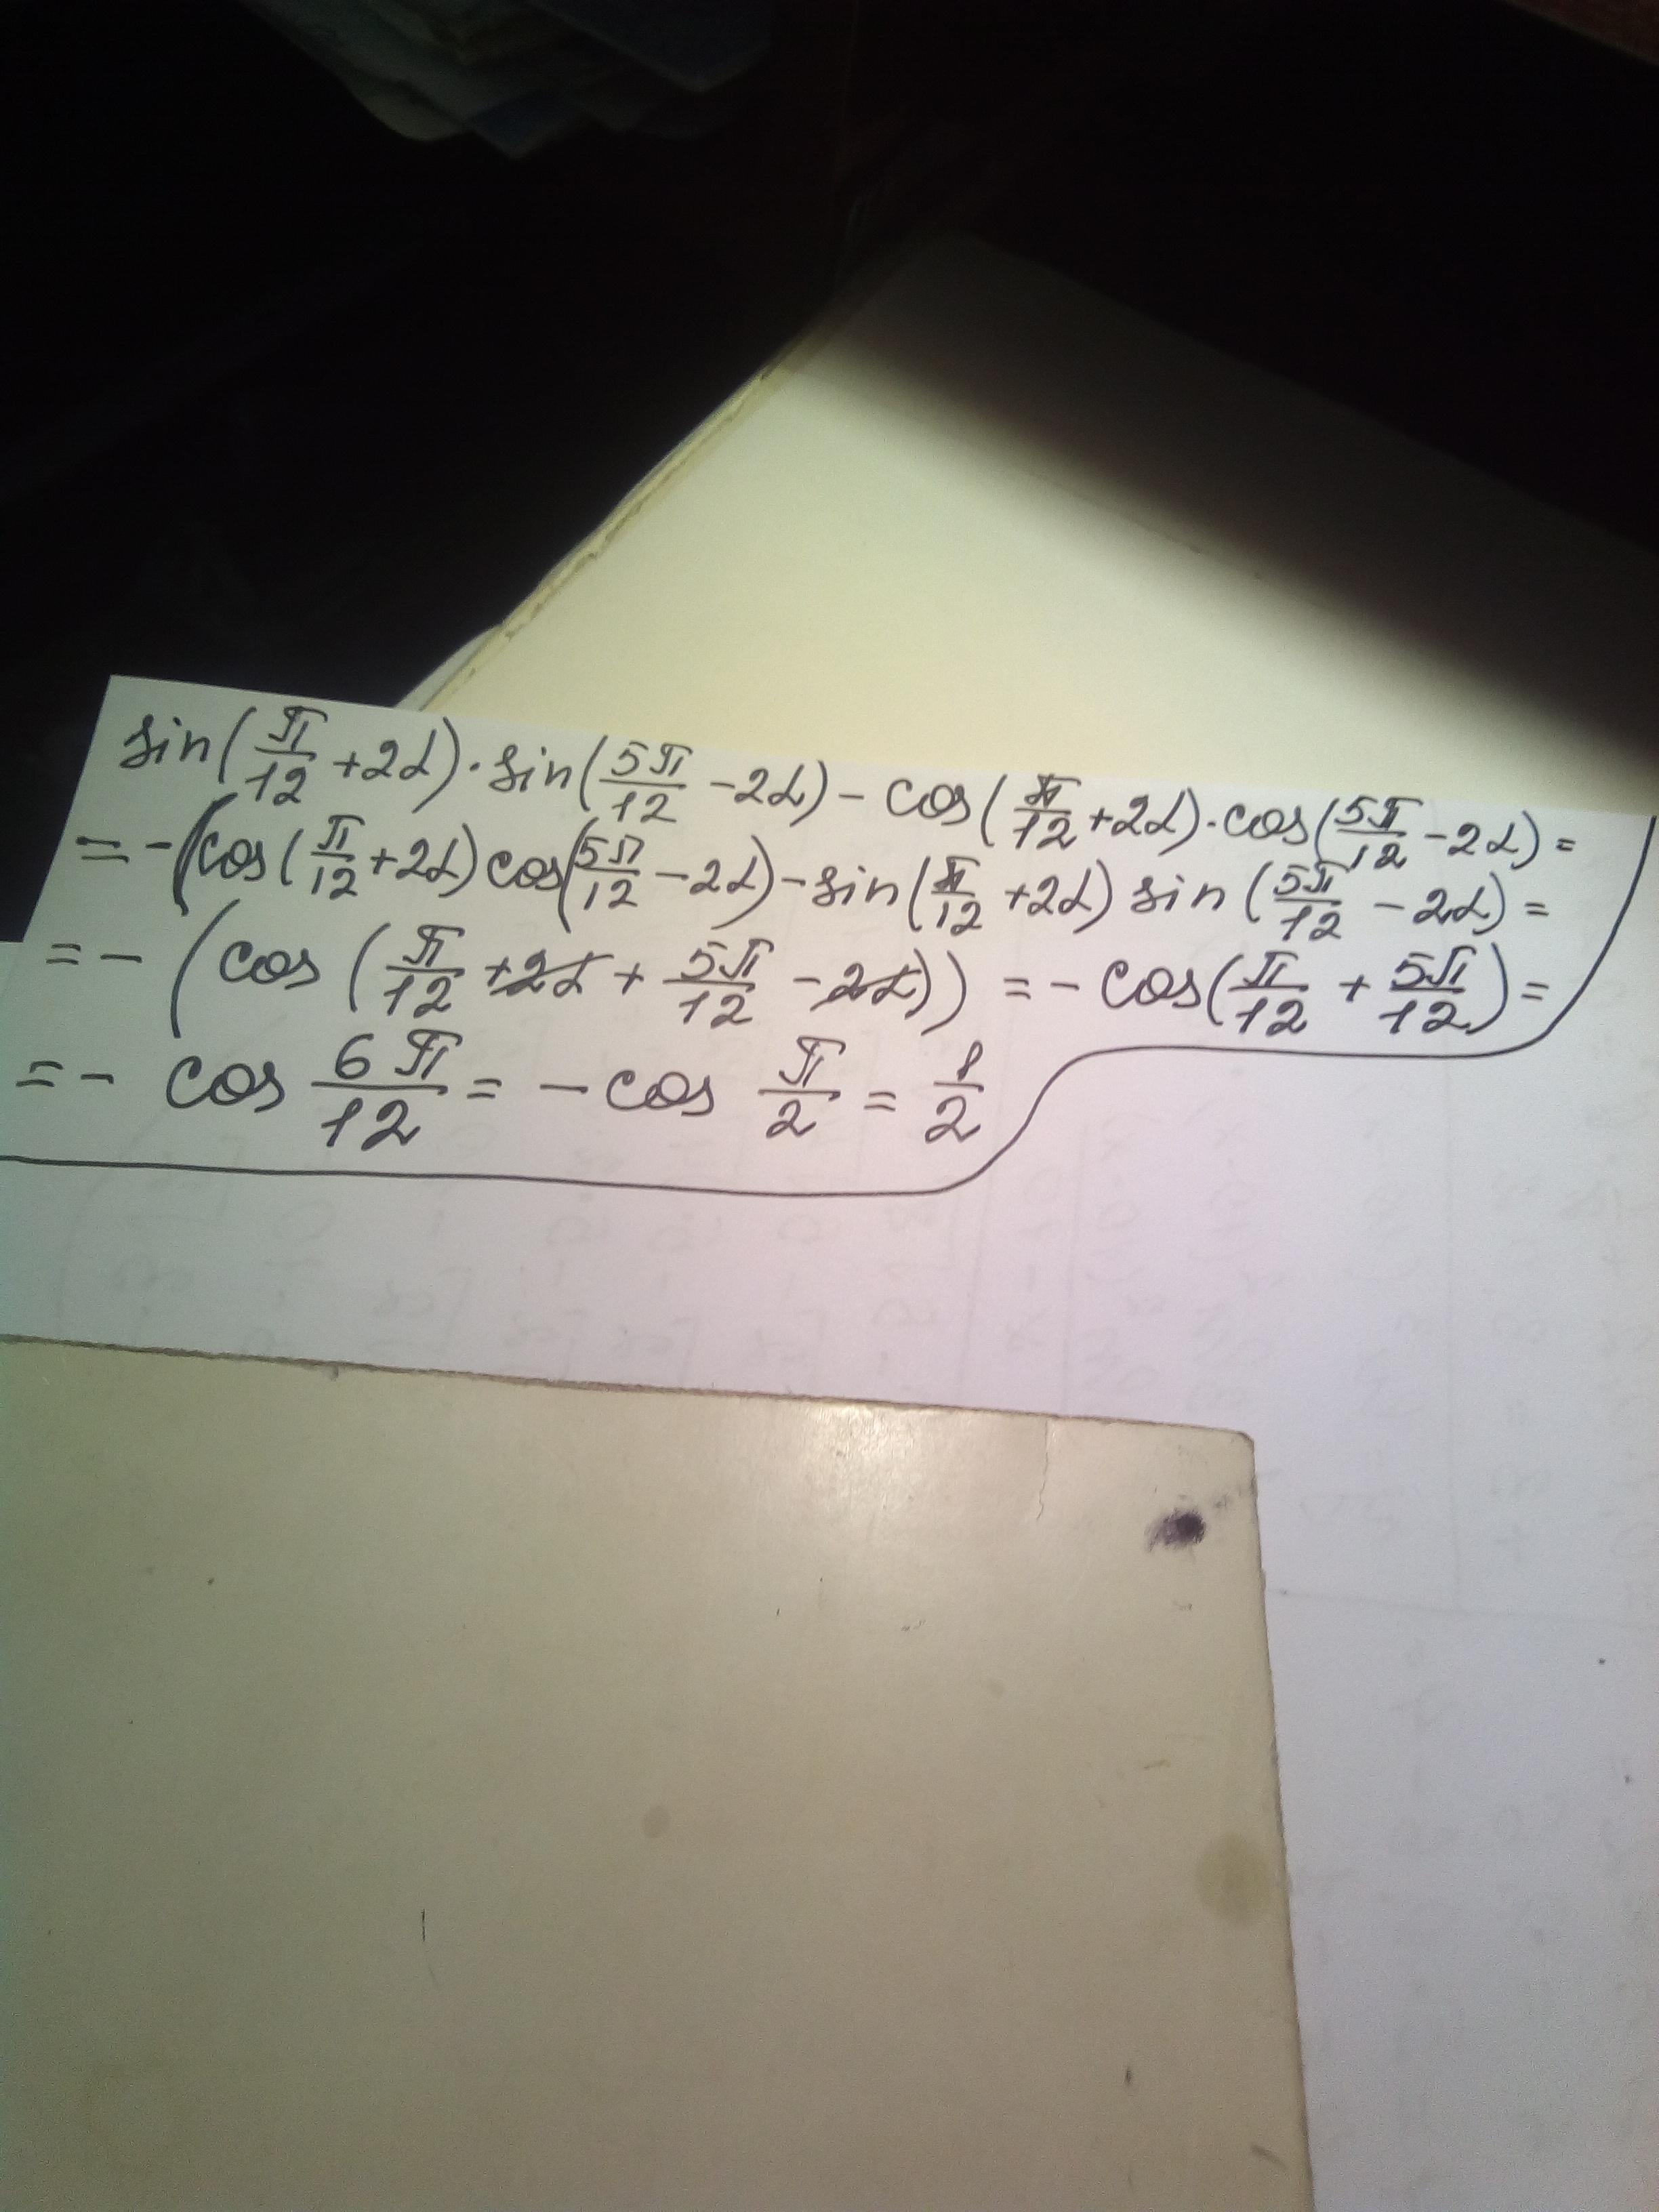 sin(π/12 + 2α) · sin(5π/12 − 2α) − cos(π/12 + 2α) · cos(5π/12 − 2α) =
= −(cos(π/12 + 2α) cos(5π/12 − 2α) − sin(π/12 + 2α) sin(5π/12 − 2α) =
= − (cos(π/12 + 2α + 5π/12 − 2α)) = − cos(π/12 + 5π/12) =
= − cos 6π/12 = − cos π/2 = 1/2